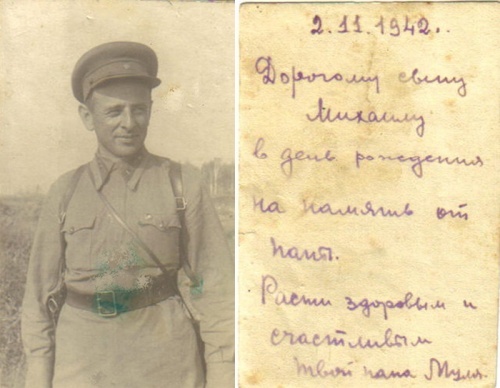 2.11.1942..
Дорогому сыну
Михаилу
в день рождения
на память от
папы.
Расти здоровым и
счастливым
Твой папа Муля.